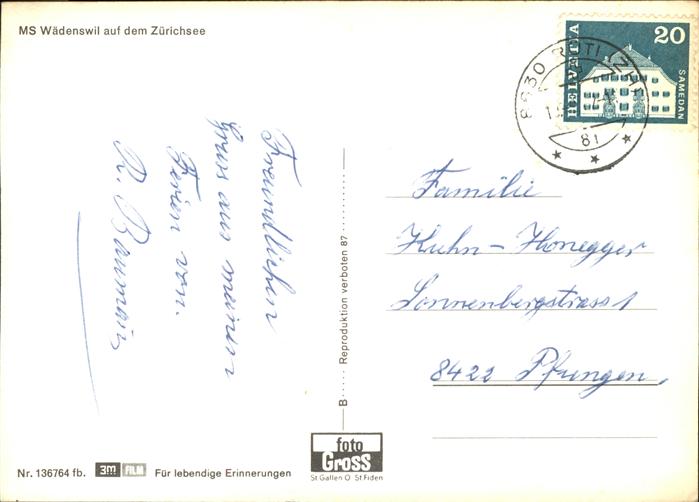 MS Wädenswil auf dem Zürichsee
HELVETIA
20
SAMEDAN
8630 RÜTI ZH
81
Freundlichen
Gruss aus meinen
Ferien von.
R. Baumann
Familie
Kuhn-Honegger
Sonnenbergstrass 1
8422 Pfungen,
B····· Reproduktion verboten 87·········
foto
Gross
St.Gallen O St.Fiden
Nr. 136764 fb.
3m FILM
Für lebendige Erinnerungen